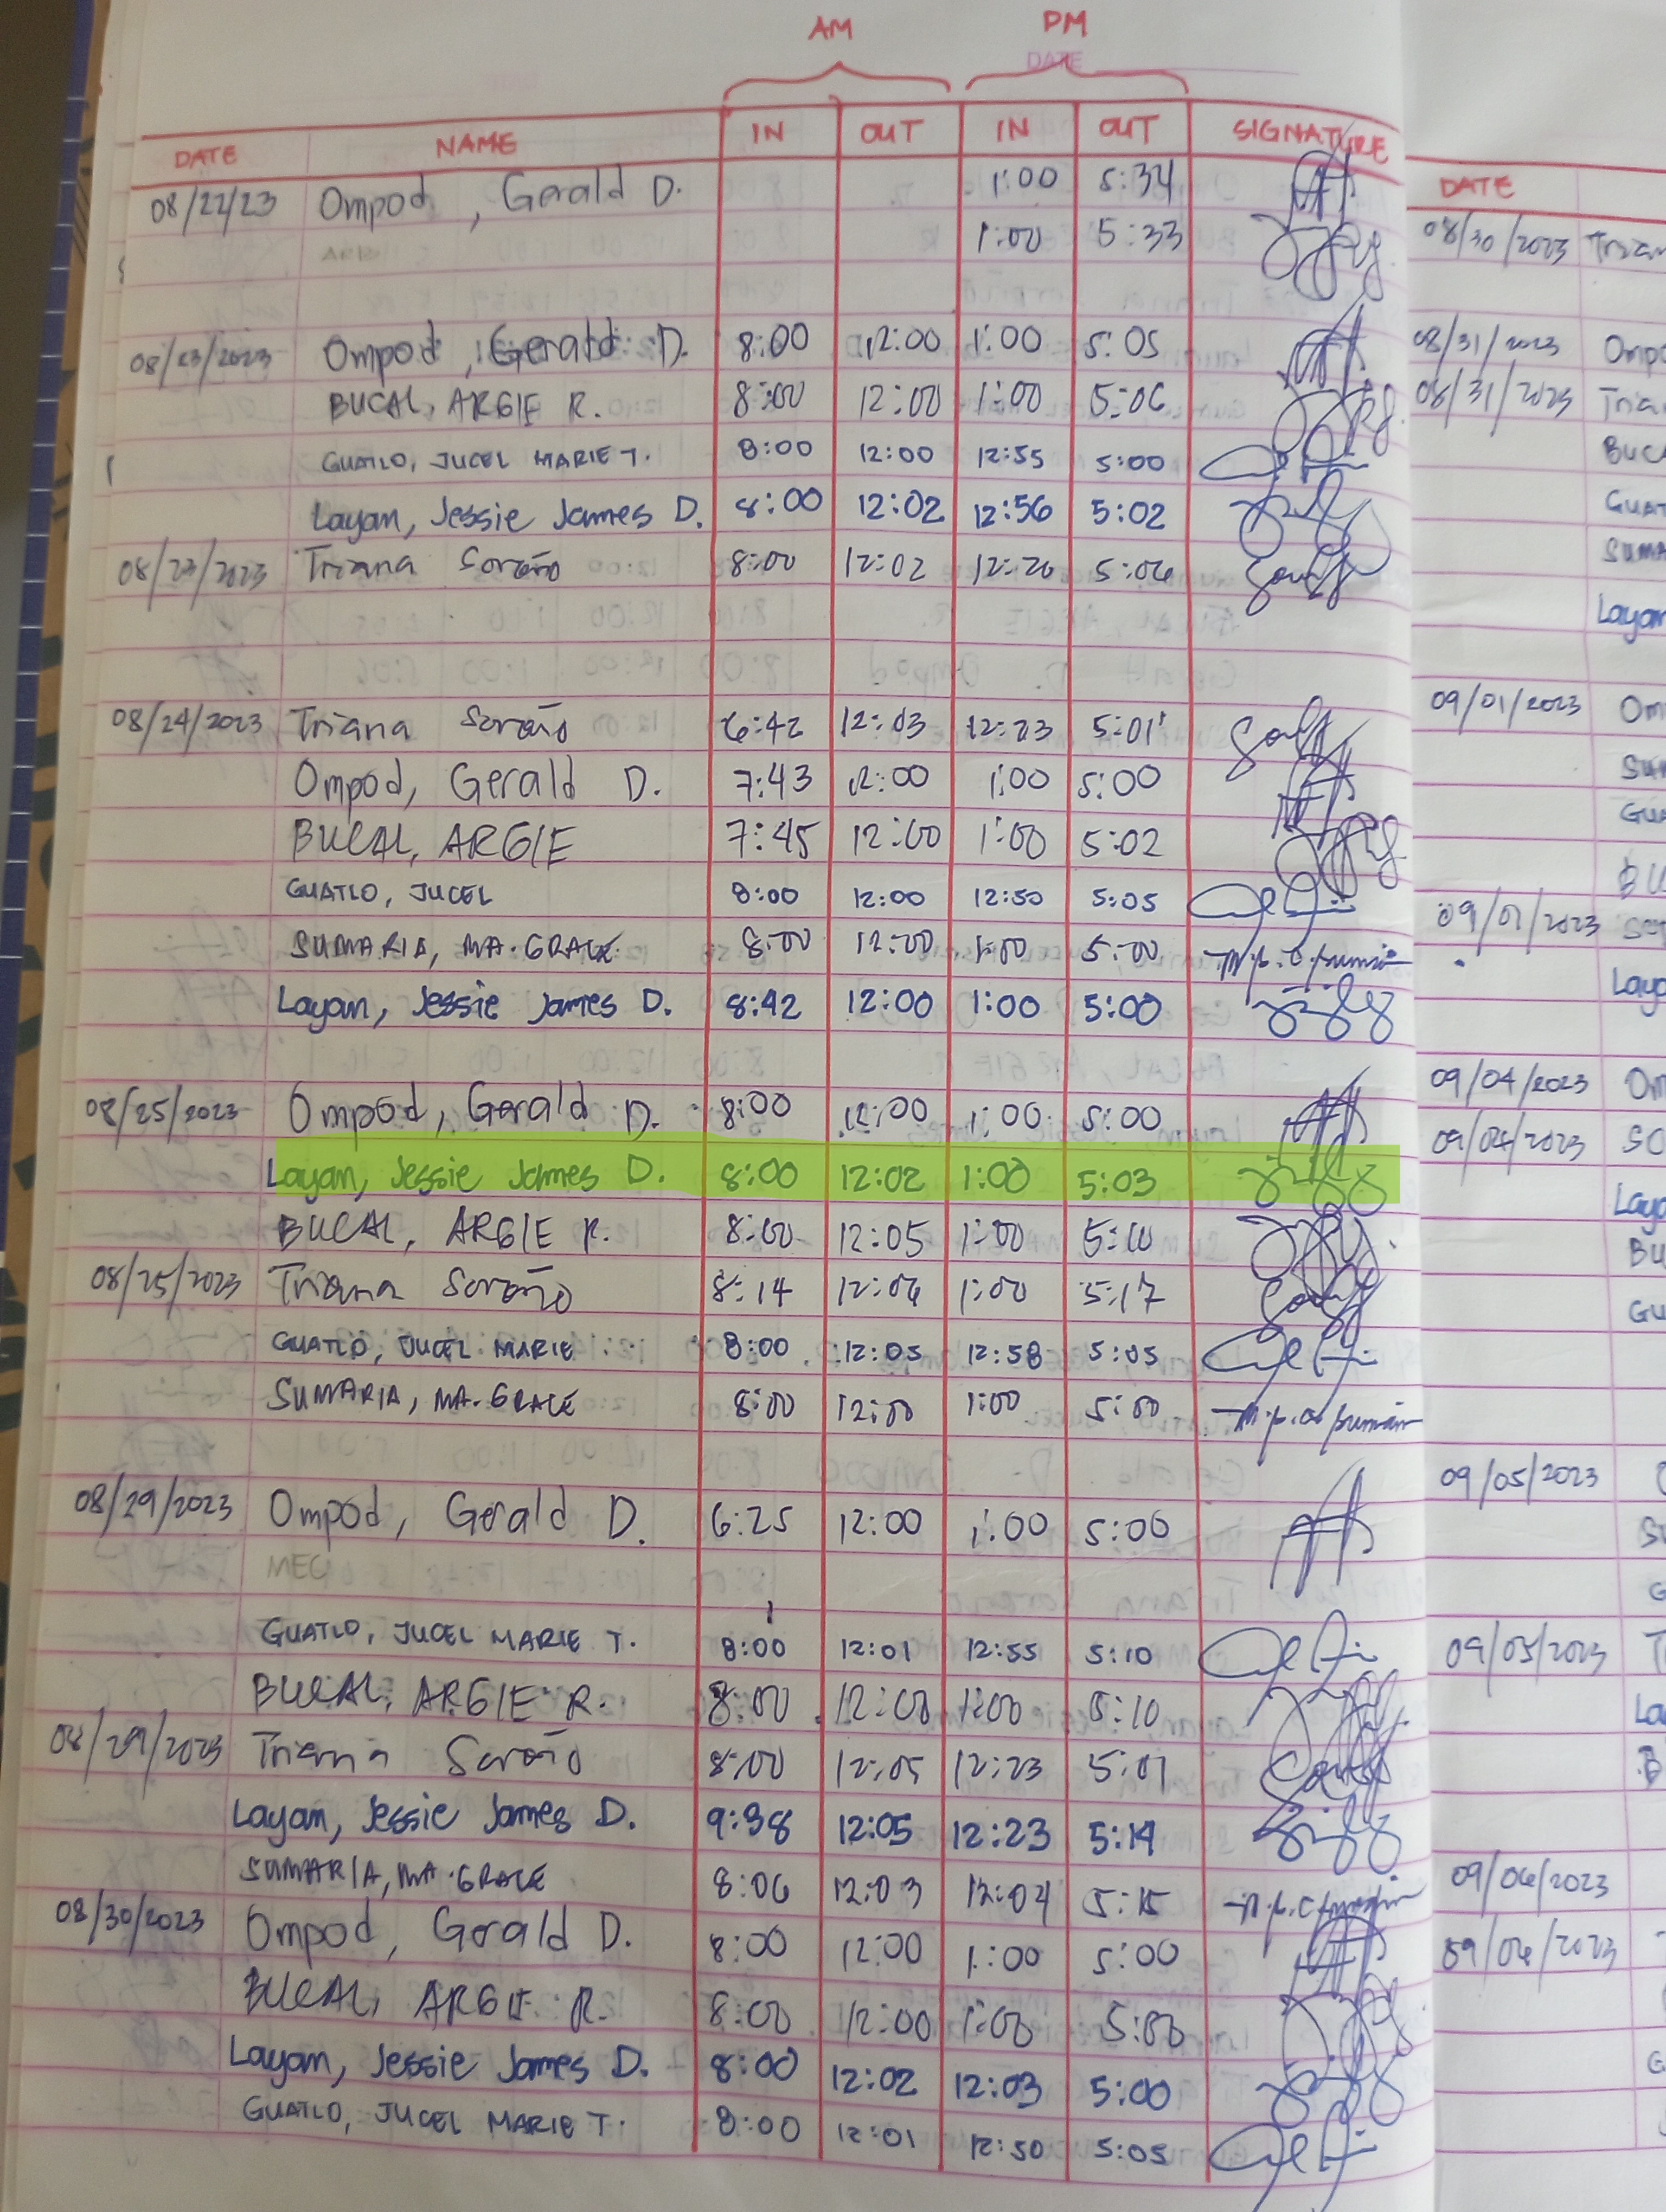 AM PM
DATE
DATE NAME IN OUT IN OUT SIGNATURE
08/22/23 Ompod, Gerald D. 1:00 5:34
1:00 5:33
08/23/2023 Ompod, Gerald D. 8:00 12:00 1:00 5:05
BUCAL, ARGIE R. 8:00 12:00 1:00 5:06
GUATLO, JUCEL MARIE T. 8:00 12:00 12:55 5:00
Layan, Jessie James D. 8:00 12:02 12:56 5:02
08/23/2023 Triana Soreño 8:00 12:02 12:20 5:06
08/24/2023 Triana Soreño 6:42 12:03 12:23 5:01
Ompod, Gerald D. 7:43 12:00 1:00 5:00
BUCAL, ARGIE 7:45 12:00 1:00 5:02
GUATLO, JUCEL 8:00 12:00 12:50 5:05
SUMARIA, MA. GRACE 8:00 12:00 1:00 5:00
Layan, Jessie James D. 8:42 12:00 1:00 5:00
08/25/2023 Ompod, Gerald D. 8:00 12:00 1:00 5:00
Layan, Jessie James D. 8:00 12:02 1:00 5:03
BUCAL, ARGIE R. 8:00 12:05 1:00 5:10
08/25/2023 Triana Soreño 8:14 12:06 1:00 5:17
GUATLO, JUCEL MARIE 8:00 12:05 12:58 5:05
SUMARIA, MA. GRACE 8:00 12:00 1:00 5:00
08/29/2023 Ompod, Gerald D. 6:25 12:00 1:00 5:00
MEC
GUATLO, JUCEL MARIE T. 8:00 12:01 12:55 5:10
BUCAL, ARGIE R. 8:00 12:00 1:00 5:10
08/29/2023 Triana Soreño 8:00 12:05 12:23 5:01
Layan, Jessie James D. 9:38 12:05 12:23 5:14
SUMARIA, MA. GRACE 8:06 12:03 12:04 5:15
08/30/2023 Ompod, Gerald D. 8:00 12:00 1:00 5:00
BUCAL, ARGIE R. 8:00 12:00 1:00 5:00
Layan, Jessie James D. 8:00 12:02 12:03 5:00
GUATLO, JUCEL MARIE T. 8:00 12:01 12:50 5:05
DATE
08/30/2023 Trian
08/31/2023 Ompo
08/31/2023 Tria
BUCA
GUAT
SUMA
Layan
09/01/2023 Om
SUM
GUA
BU
09/01/2023
Laya
09/04/2023 Om
09/04/2023 SO
Laya
BU
GU
09/05/2023
S
G
09/05/2023 T
La
B
09/06/2023
09/06/2023
G